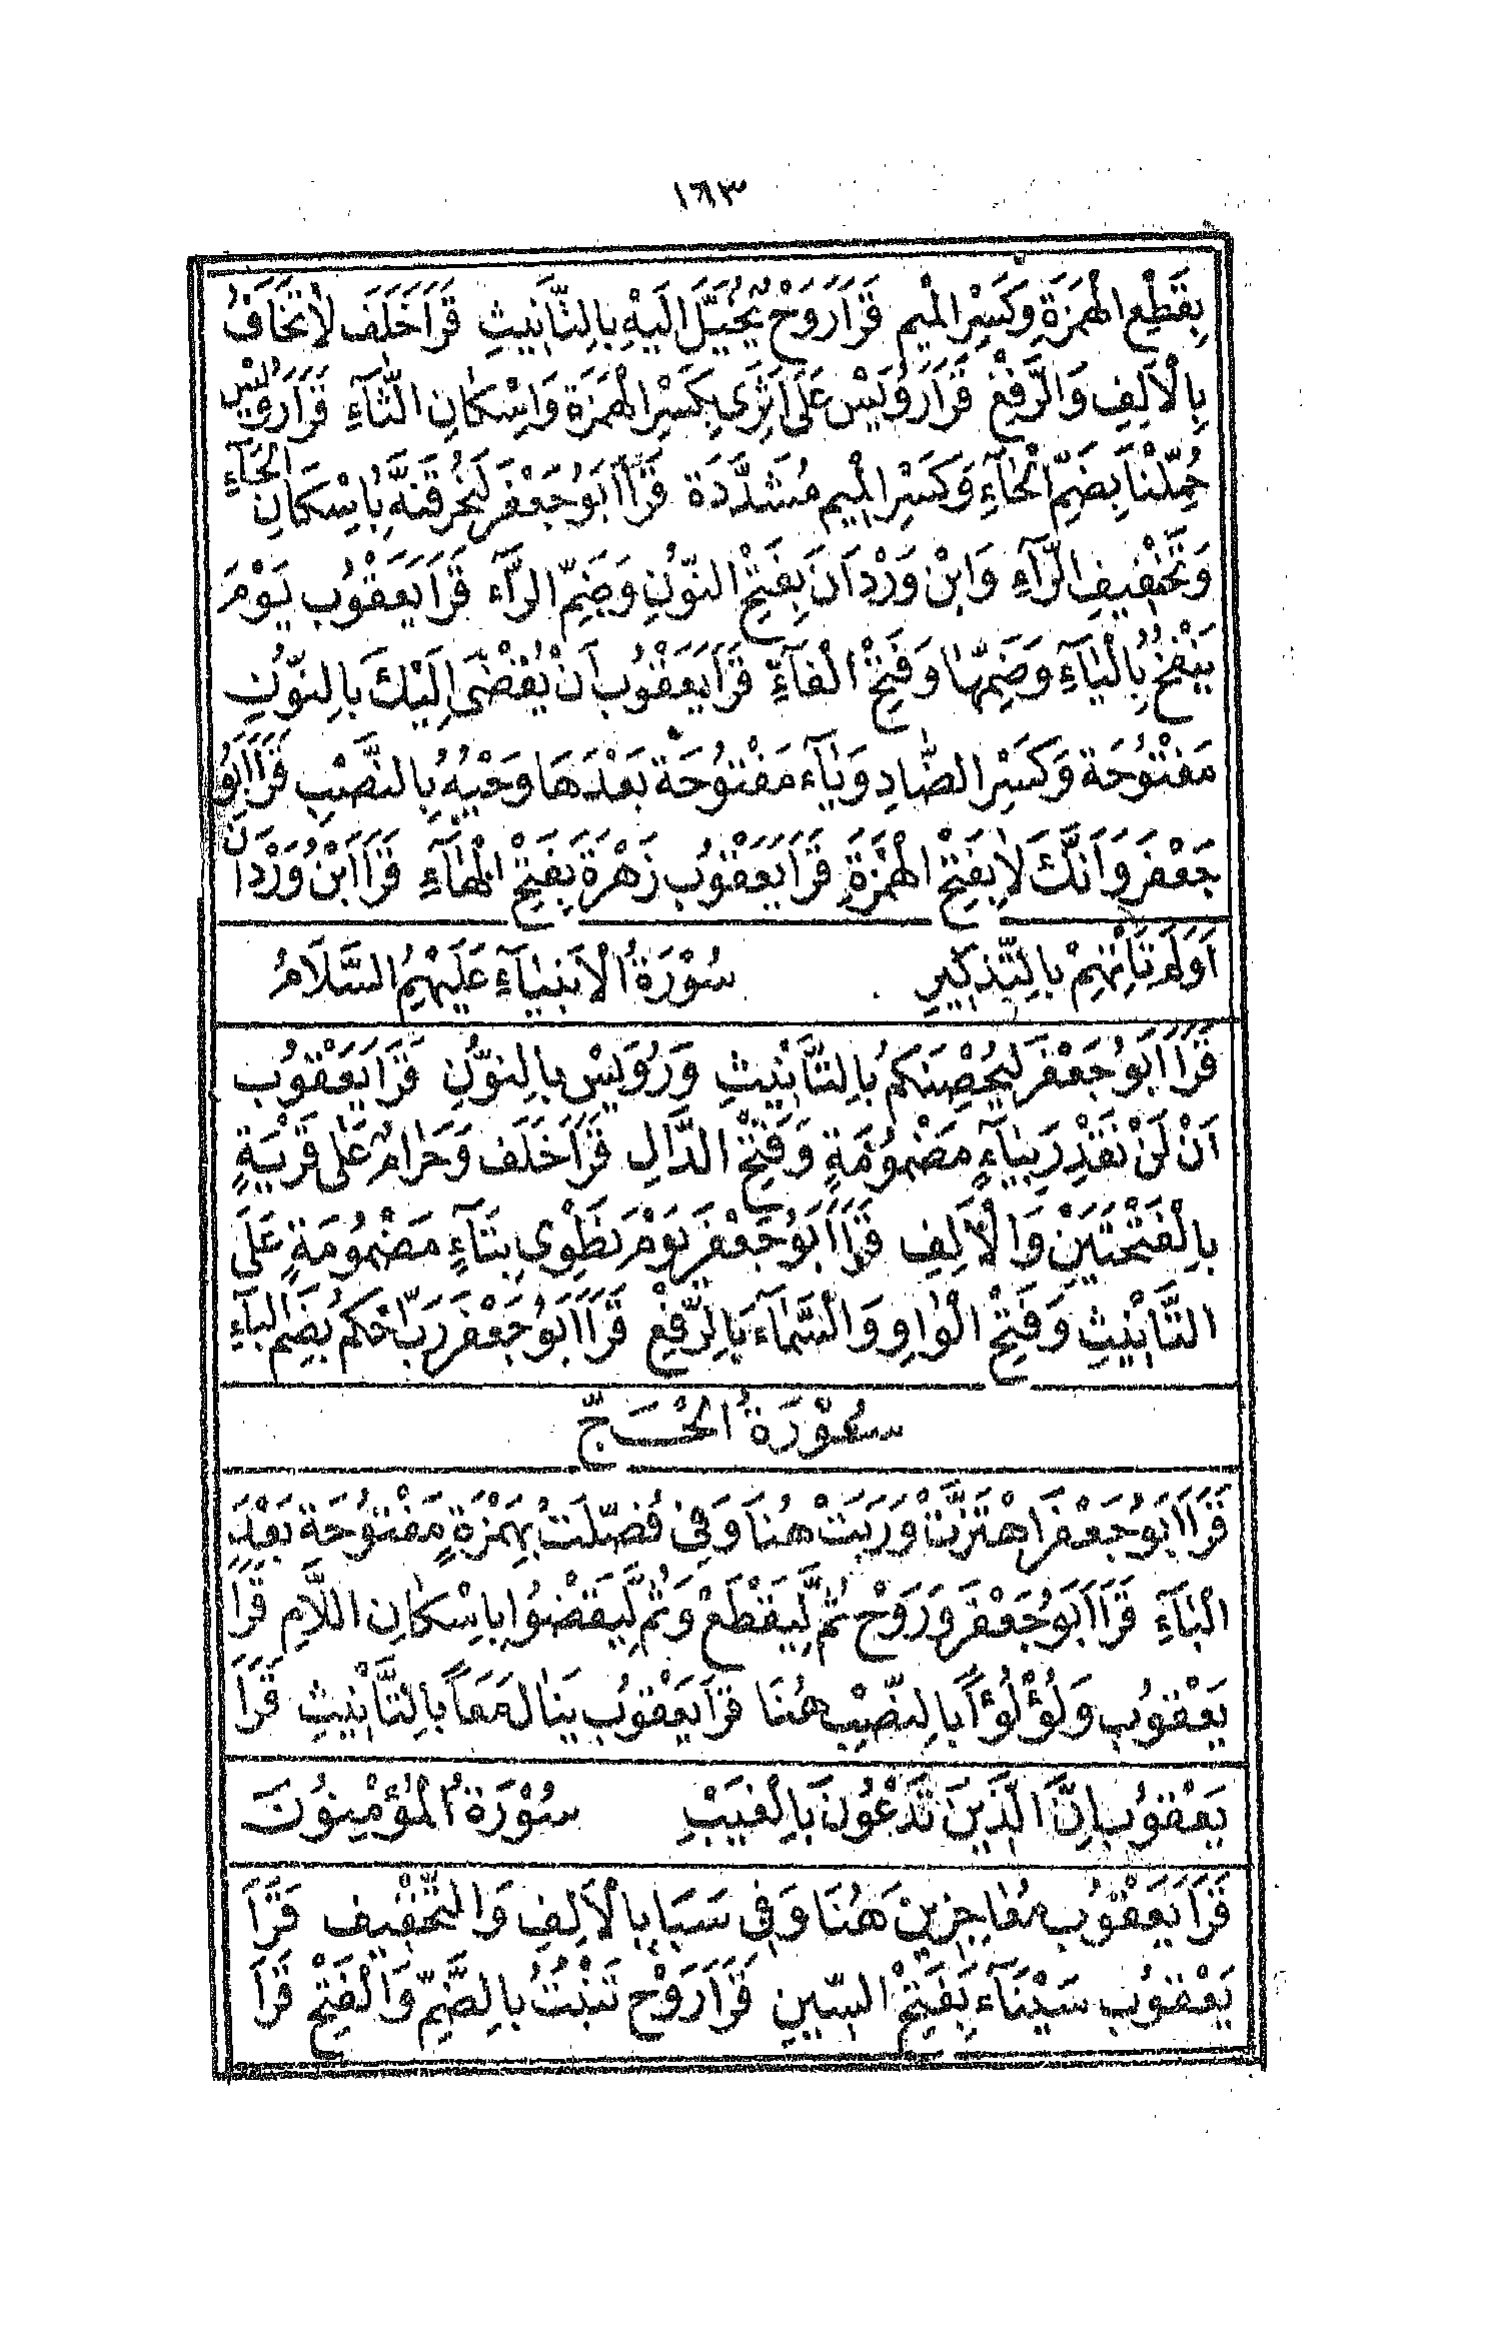 ١٦٣
بِقَطْعِ الْهَمْزَةِ وَكَسْرِ الْمِيمِ قَرَأَ رَوْحٌ يُخَيَّلُ اِلَيْهِ بِالتَّأْنِيثِ قَرَأَ خَلَفَ لَا تَخَافُ
بِالْاَلِفِ وَالرَّفْعِ قَرَأَ رُوَيْسٌ عَلَى اِثْرِى بِكَسْرِ الْهَمْزَةِ وَاِسْكَانِ الثَّاءِ قَرَأَ رُوَيْسٌ
حُمِّلْنَا بِضَمِّ الْحَاءِ وَكَسْرِ الْمِيمِ مُشَدَّدَة قَرَأَ اَبُو جَعْفَرَ لَنُحْرِقَنَّهُ بِاِسْكَانِ الْحَاءِ
وَتَخْفِيفِ الرَّاءِ وَابْنُ وَرْدَانَ بِفَتْحِ النُّونِ وَضَمِّ الرَّاءِ قَرَأَ يَعْقُوبُ يَوْمَ
يُنْفَخُ بِالْيَاءِ وَضَمِّهَا وَفَتْحِ الْفَاءِ قَرَأَ يَعْقُوبُ اَنْ يُقْضَى اِلَيْكَ بِالنُّونِ
مَفْتُوحَة وَكَسْرِ الضَّادِ وَيَاء مَفْتُوحَة بَعْدَهَا وَحْيُهُ بِالنَّصْبِ قَرَأَ اَبُو
جَعْفَرَ وَاَنَّكَ لَا بِفَتْحِ الْهَمْزَةِ قَرَأَ يَعْقُوبُ زَهْرَةَ بِفَتْحِ الْهَاءِ قَرَأَ ابْنُ وَرْدَانَ
اَوَلَمْ تَأْتِهِمْ بِالتَّذْكِيرِ سُوْرَةُ الْاَنْبِيَاءِ عَلَيْهِمُ السَّلَامُ
قَرَأَ اَبُو جَعْفَرَ لِيُحْصِنَكُمْ بِالتَّأْنِيثِ وَرُوَيْسٌ بِالنُّونِ قَرَأَ يَعْقُوبُ
اَنْ لَنْ نَقْدِرَ بِيَاءٍ مَضْمُومَةٍ وَفَتْحِ الدَّالِ قَرَأَ خَلَفَ وَحَرَامٌ عَلَى قَرْيَةٍ
بِالْفَتْحَتَيْنِ وَالْاَلِفِ قَرَأَ اَبُو جَعْفَرَ يَوْمَ نَطْوِى بِتَاءٍ مَضْمُومَةٍ عَلَى
التَّأْنِيثِ وَفَتْحِ الْوَاوِ وَالسَّمَاءَ بِالرَّفْعِ قَرَأَ اَبُو جَعْفَرَ رَبِّ احْكُمْ بِضَمِّ الْبَاءِ
سُوْرَةُ الْحَجّ
قَرَأَ اَبُو جَعْفَرَ اهْتَزَّتْ وَرَبَتْ هُنَا وَفِى فُصِّلَتْ بِهَمْزَةٍ مَفْتُوحَة بَعْدَ
الْبَاءِ قَرَأَ اَبُو جَعْفَرَ وَرَوْحٌ ثُمَّ لْيَقْطَعْ وَثُمَّ لْيَقْضُوا بِاِسْكَانِ اللَّامِ قَرَأَ
يَعْقُوبُ وَلُؤْلُؤًا بِالنَّصْبِ هُنَا قَرَأَ يَعْقُوبُ يَنَالُ مَعًا بِالتَّأْنِيثِ قَرَأَ
يَعْقُوبُ اِنَّ الَّذِينَ تَدْعُونَ بِالْغَيْبِ سُوْرَةُ الْمُؤْمِنُونَ
قَرَأَ يَعْقُوبُ مُعَاجِزِينَ هُنَا وَفِى سَبَا بِالْاَلِفِ وَالتَّخْفِيفِ قَرَأَ
يَعْقُوبُ سَيْنَاءَ بِفَتْحِ السِّينِ قَرَأَ رَوْحٌ تَنْبُتُ بِالضَّمِّ وَالْفَتْحِ قَرَأَ